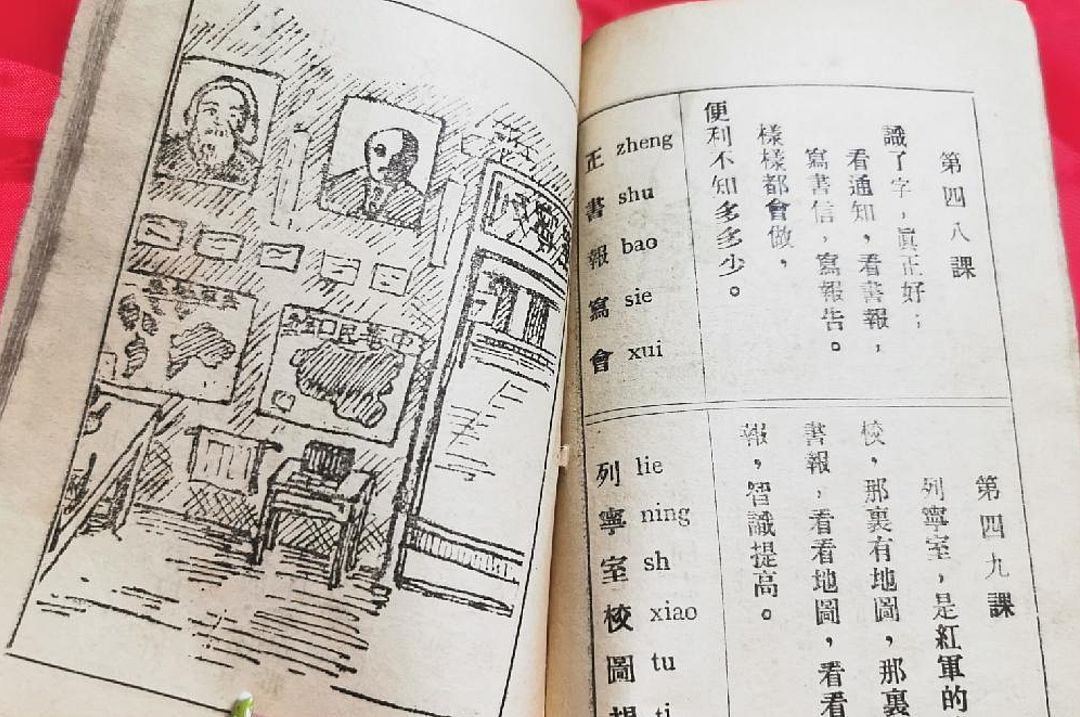 第四八課
識了字，眞正好；
看通知，看書報，
寫書信，寫報告。
樣樣都會做，
便利不知多多少。
正 zheng
書 shu
報 bao
寫 sie
會 xui
第四九課
列寧室，是紅軍的
校，那裏有地圖，那裏
書報，看看地圖，看看
報，智識提高。
列 lie
寧 ning
室 sh
校 xiao
圖 tu
提 ti